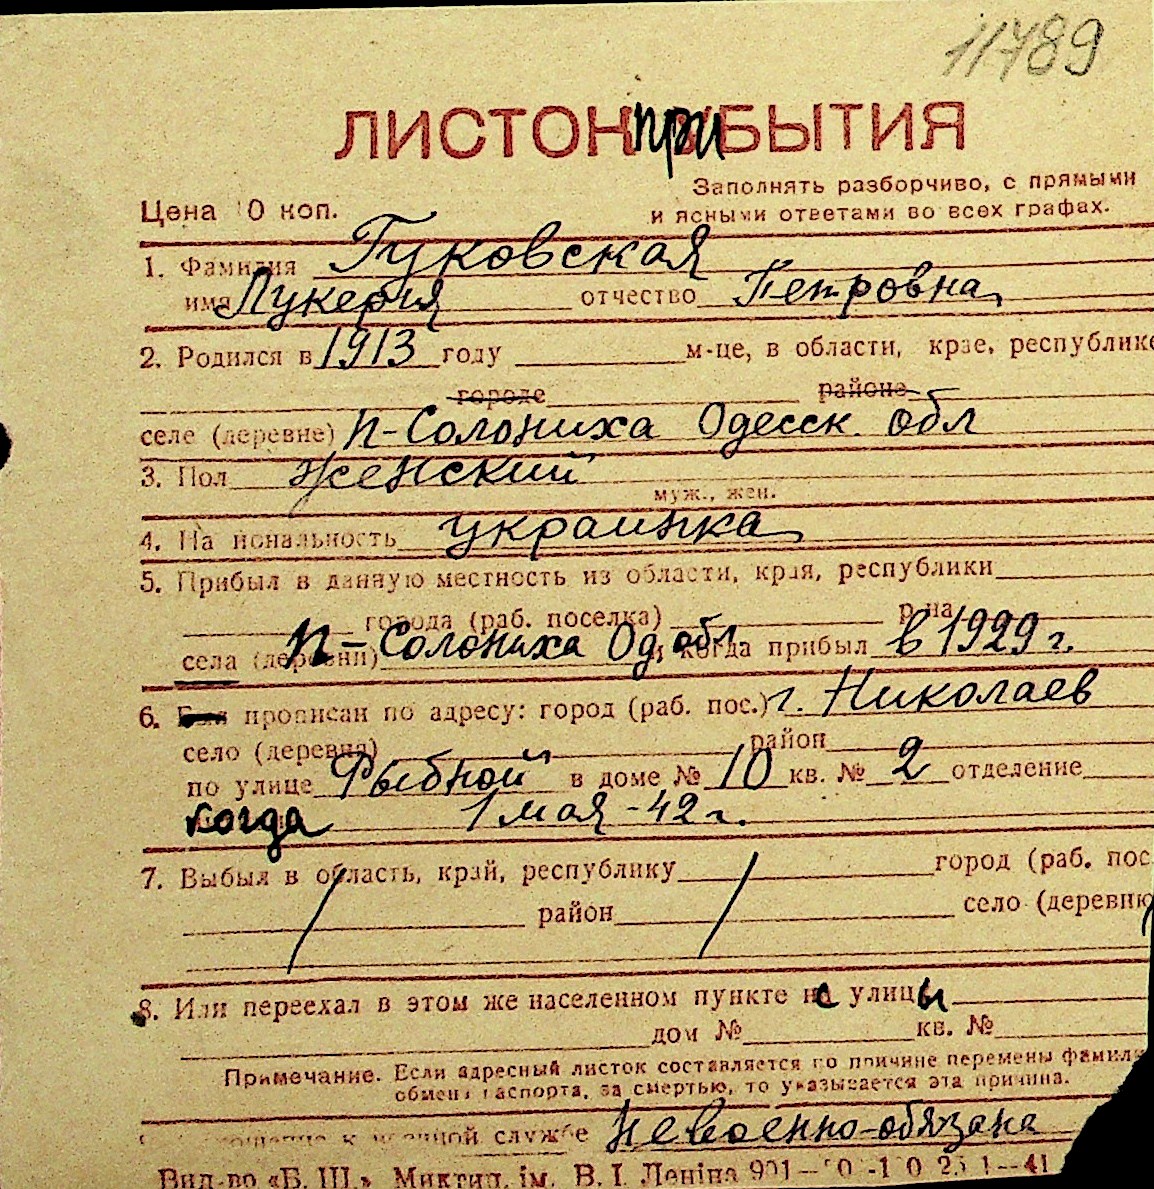 11789
ЛИСТОК ПРИБЫТИЯ
Заполнять разборчиво, с прямыми
Цена 10 коп. и ясными ответами во всех графах.
1. Фамилия Гуковская
имя Лукерия отчество Петровна
2. Родился в 1913 году м-це, в области, крае, республике
городе районе
селе (деревне) п-Солониха Одесск. обл
3. Пол женский
муж., жен.
4. Национальность украинка
5. Прибыл в данную местность из области, края, республики
города (раб. поселка) р-на
села (деревни) п-Солониха Од. обл. когда прибыл в 1929 г.
6. прописан по адресу: город (раб. пос.) г. Николаев
село (деревня) район
по улице Рыбной в доме № 10 кв. № 2 отделение
когда 1 мая - 42 г.
7. Выбыл в область, край, республику город (раб. пос
район село (деревню
8. Или переехал в этом же населенном пункте с улицы
дом № кв. №
Примечание. Если адресный листок составляется по причине перемены фамилии
обмена паспорта, за смертью, то указывается эта причина.
к военной службе невоенно-обязана
Вид-во «Б. Ш.» Миктип. ім. В. І. Леніна